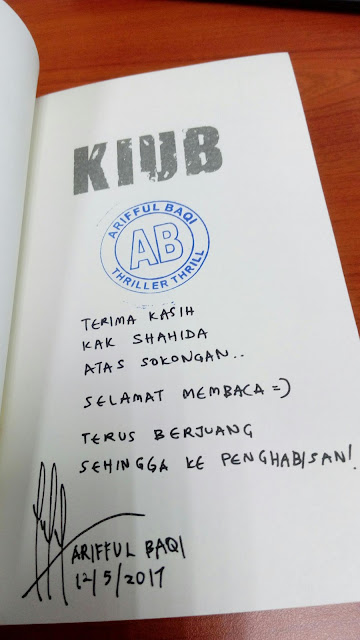 KIUB
ARIFFUL BAQI
AB
THRILLER THRILL
TERIMA KASIH
KAK SHAHIDA
ATAS SOKONGAN..
SELAMAT MEMBACA =)
TERUS BERJUANG
SEHINGGA KE PENGHABISAN!
ARIFFUL BAQI
12/5/2017